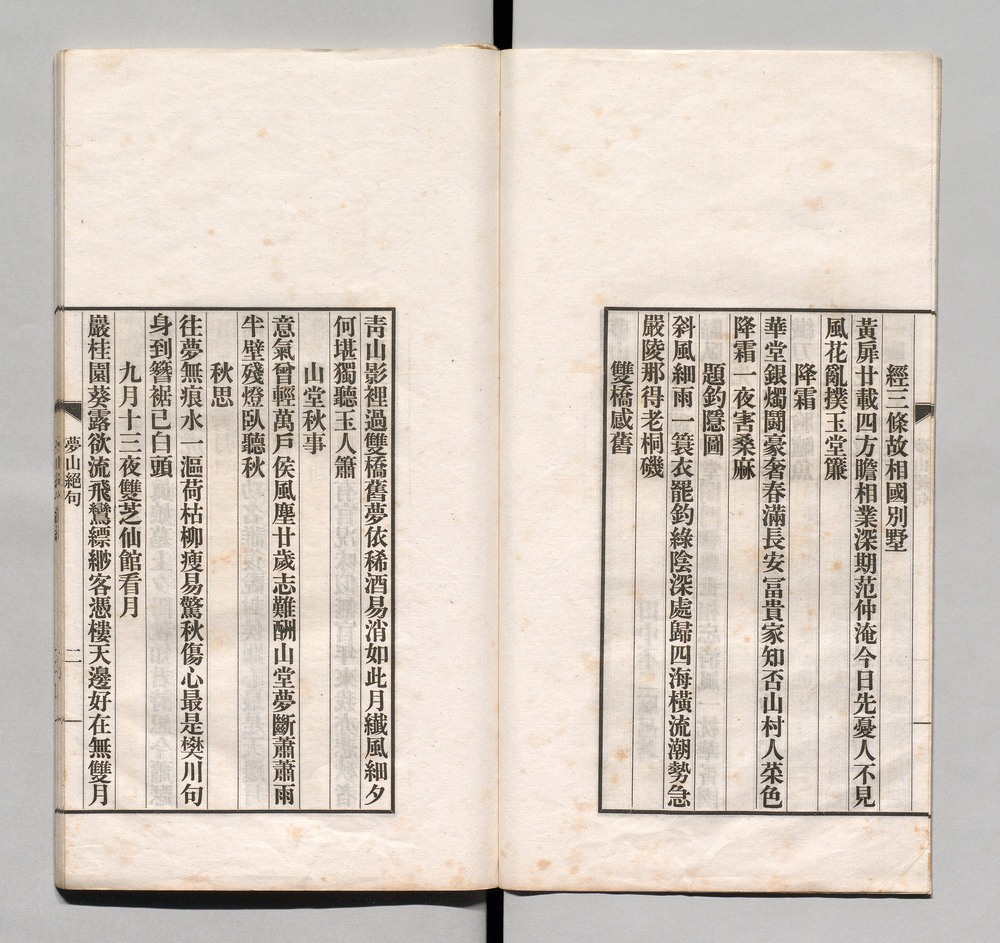 經三條故相國別墅
黃扉廿載四方瞻相業深期范仲淹今日先憂人不見
風花亂撲玉堂簾
降霜
華堂銀燭鬪豪奢春滿長安冨貴家知否山村人菜色
降霜一夜害桑麻
題釣隱圖
斜風細雨一簑衣罷釣綠陰深處歸四海橫流潮勢急
嚴陵那得老桐磯
雙橋感舊
靑山影裡過雙橋舊夢依稀酒易消如此月纖風細夕
何堪獨聽玉人簫
山堂秋事
意氣曾輕萬戶侯風塵廿歲志難酬山堂夢斷蕭蕭雨
半壁殘燈臥聽秋
秋思
往夢無痕水一漚荷枯柳瘦易驚秋傷心最是樊川句
身到簪裾已白頭
九月十三夜雙芝仙館看月
巖桂園葵露欲流飛鸞縹緲客憑樓天邊好在無雙月
夢山絕句
二